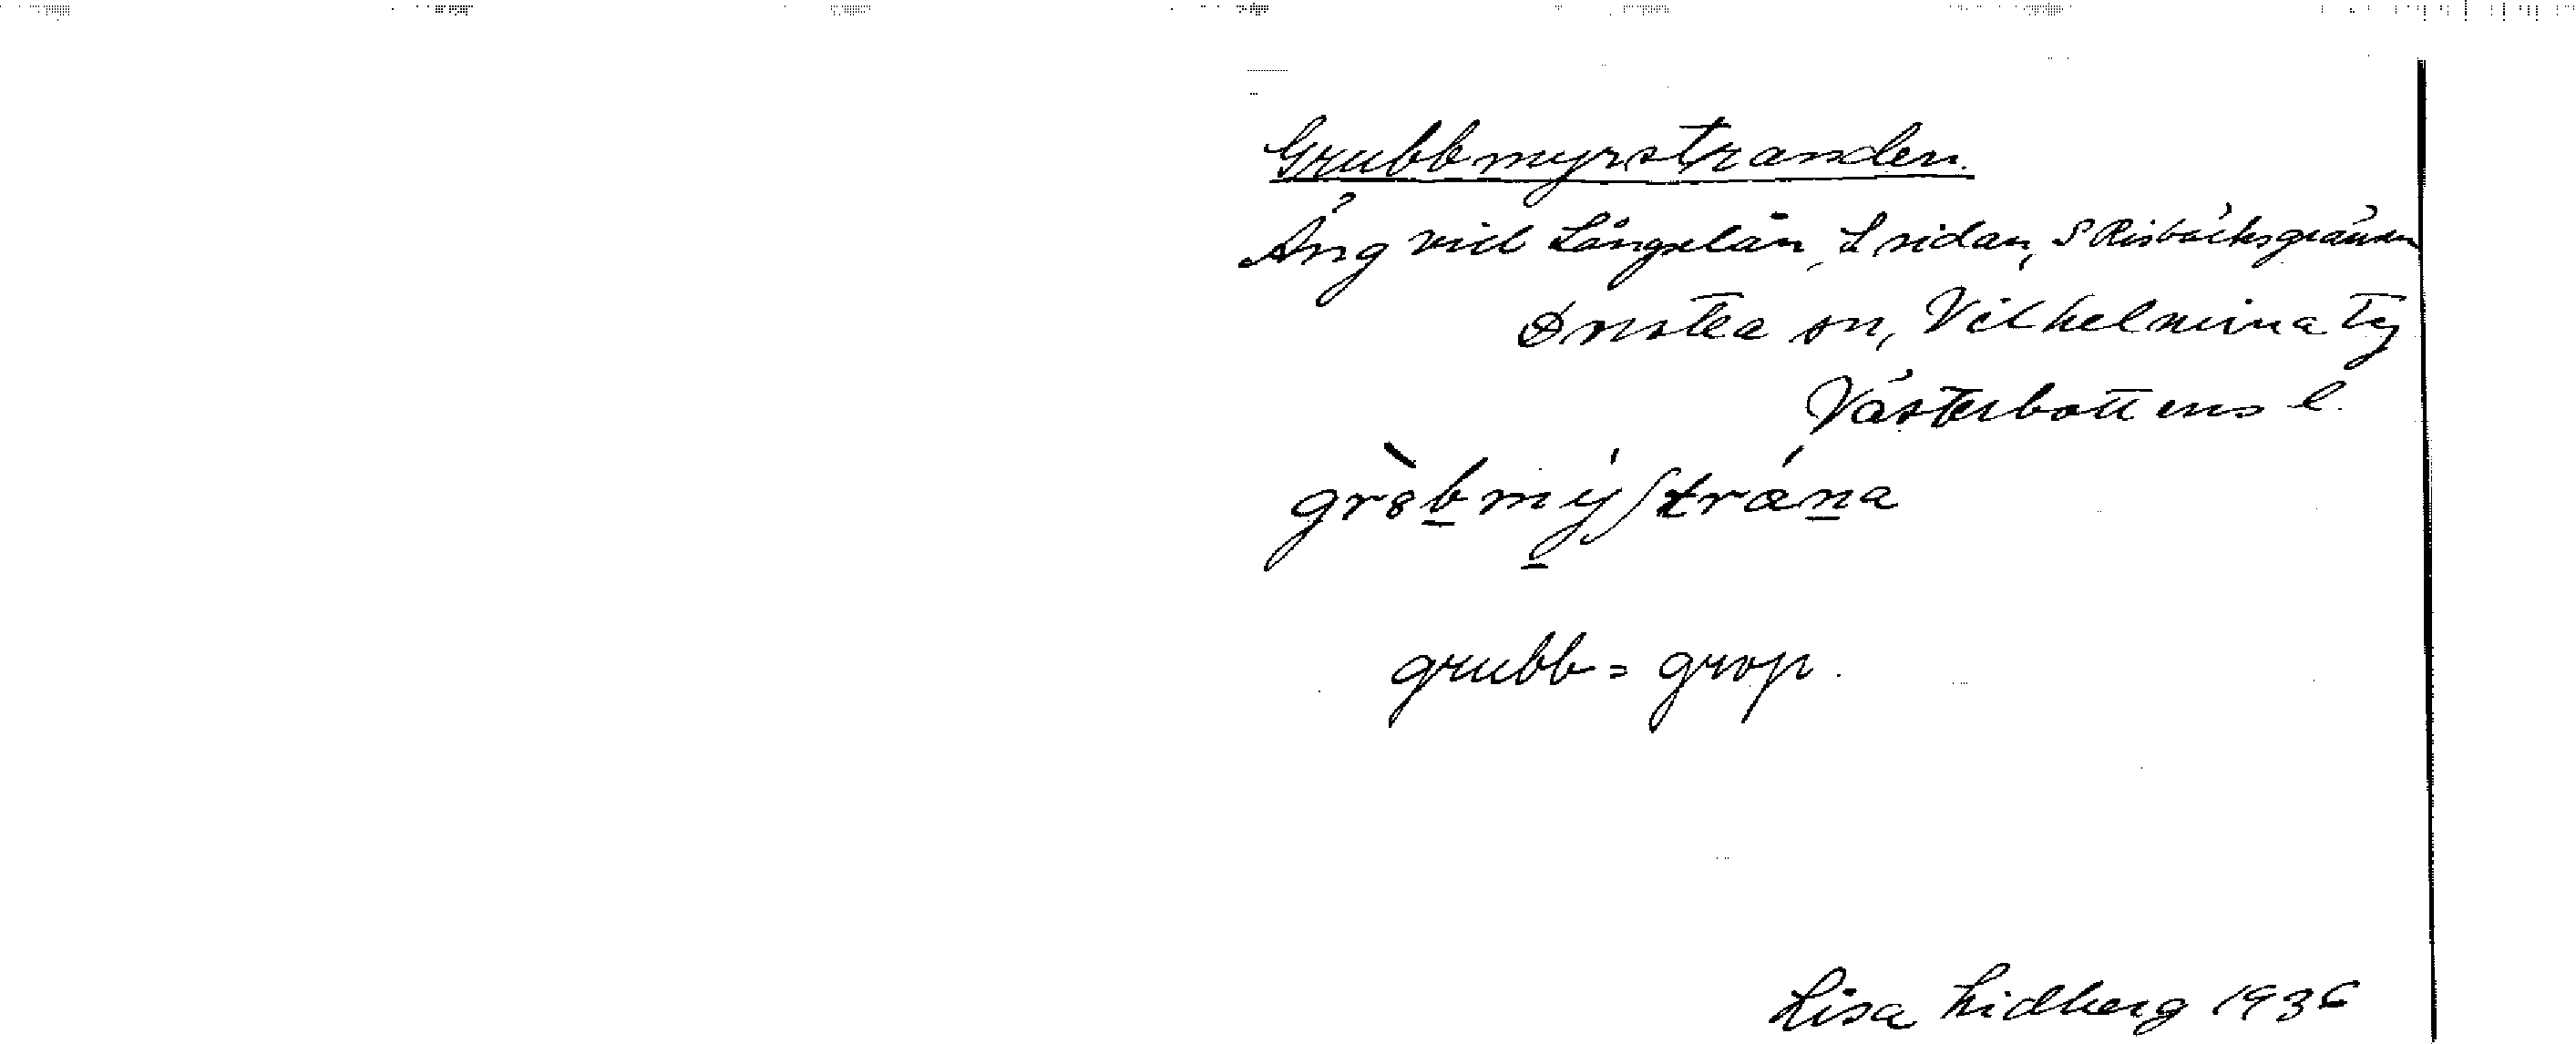 Grubbmyrstranden.
Äng vid Långselån, L sidan, S Risbäcksgränsen
Dorotea sn, Vilhelmina tg
Västerbottens l.
grubb = grop.
Lisa Lidberg 1936